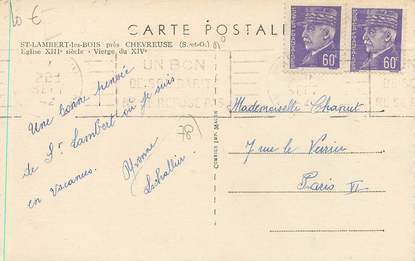 10 €
CARTE POSTALE
ST-LAMBERT-les-BOIS près CHEVREUSE (S.-et-O.)
Eglise XIIIe siècle - Vierge du XIVe
60c
60c
UN BON
Une bonne pensée
de St Lambert où je suis
en vacances.
Yvonne
78
Mademoiselle Chanut
7 rue le Verrier
Paris VI